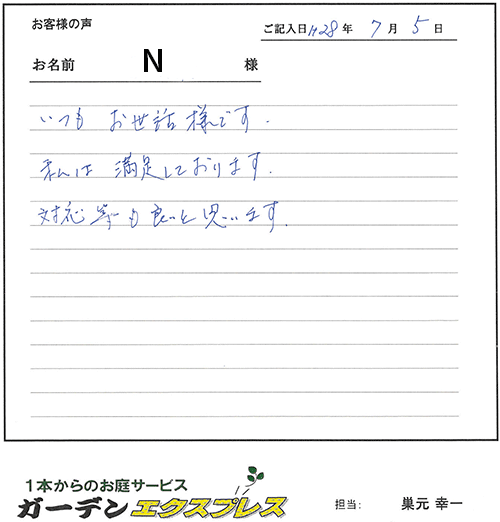 お客様の声
ご記入日 H28 年 7 月 5 日
お名前 N 様
いつも お世話様です.
私は 満足しております.
対応等も良いと思います.
1本からのお庭サービス
ガーデンエクスプレス
担当: 巣元 幸一